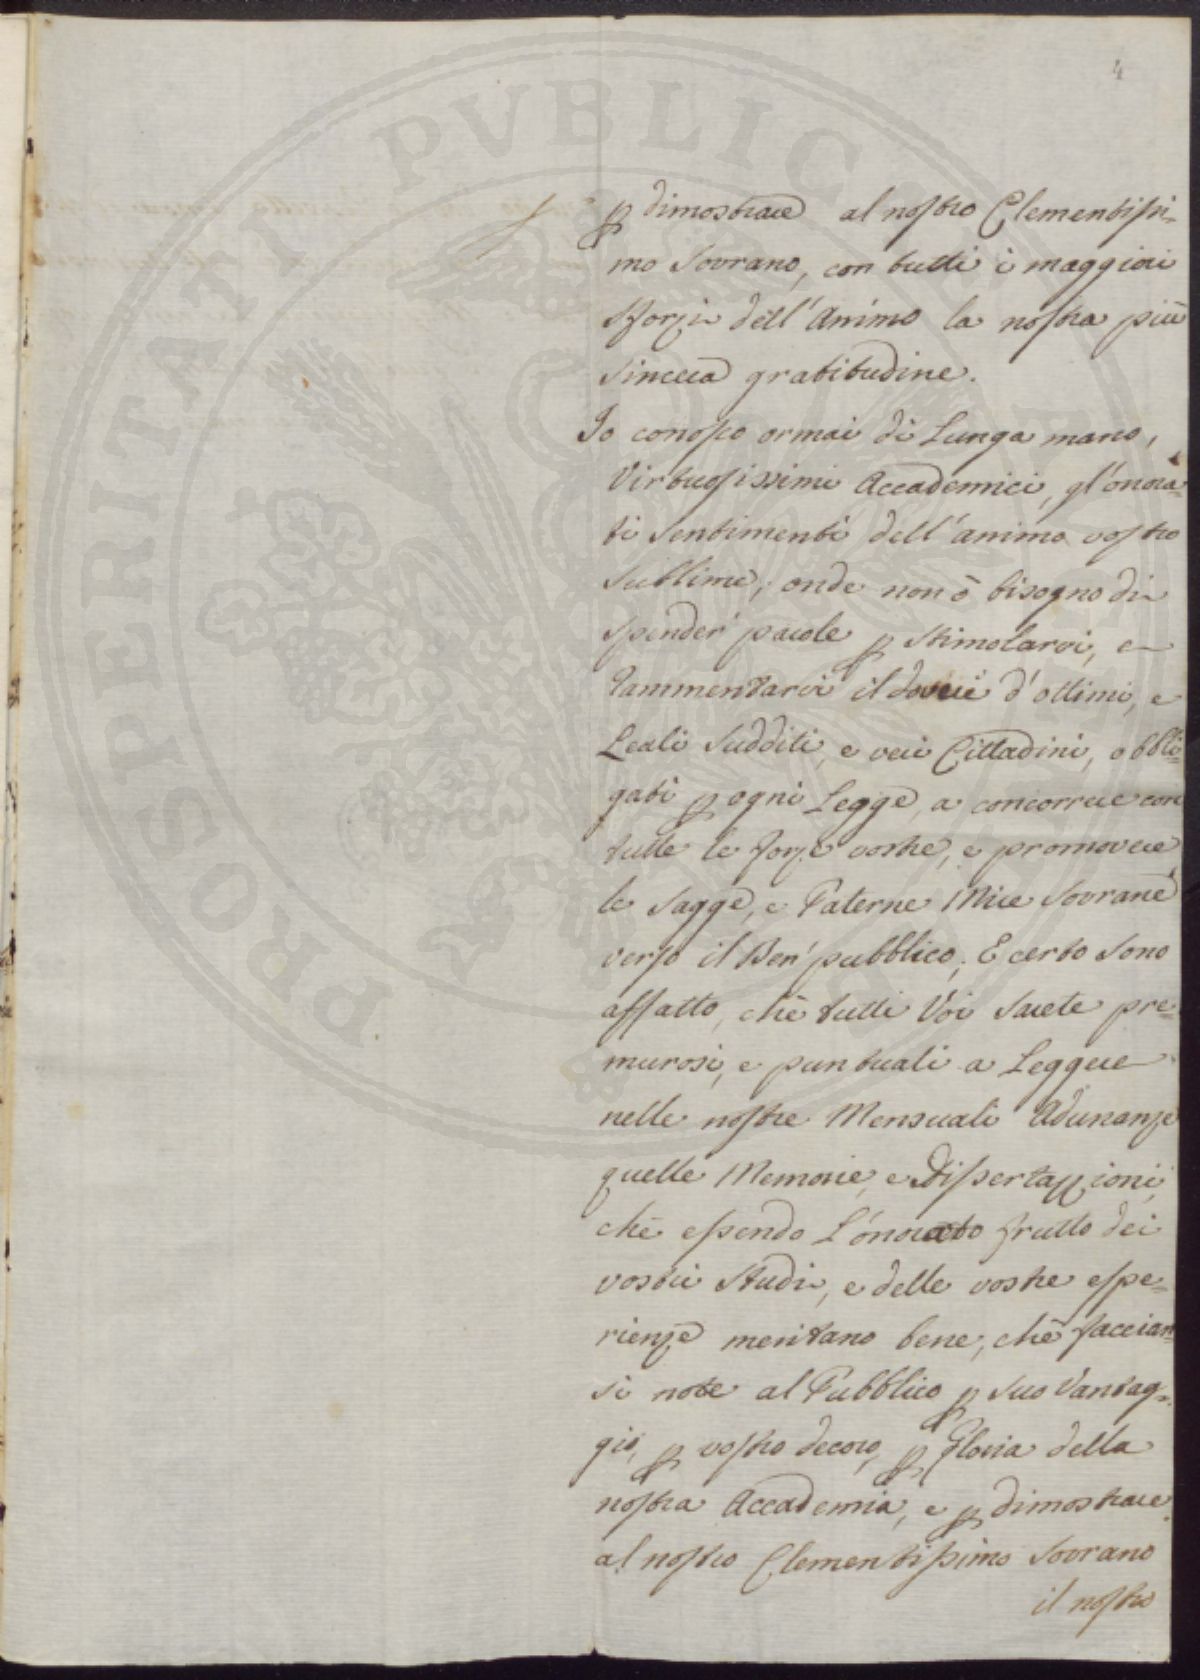 4
PROSPERITATI PUBLICAE
ꝑ dimostrare al nostro Clementissi=
mo Sovrano, con tutti i maggiori
sforzi dell'Animo la nostra più
sincera gratitudine.
Io conosco ormai di Lunga mano,
Virtuosissimi Accademici, gl'onora=
ti sentimenti dell'animo vostro
sublime; onde non ò bisogno di
spender' parole ꝑ stimolarvi, e
rammentarvi il dovere d'ottimi, e
Leali Sudditi, e veri Cittadini, obbli=
gati ꝑ ogni Legge, a concorrere con
tutte le forze vostre, e promovere
le sagge, e Paterne Mire Sovrane
verso il Ben' pubblico; E certo sono
affatto, chè tutti Voi sarete pre=
murosi, e puntuali a Leggere
nelle nostre Mensuali Adunanze
quelle Memorie, e Dissertazzioni,
chè essendo L'onorato frutto dei
vostri Studi, e delle vostre espe=
rienze meritano bene, chè faccian=
si note al Pubblico ꝑ suo Vantag=
gio, ꝑ vostro decoro, ꝑ Gloria della
nostra Accademia, e ꝑ dimostrare
al nostro Clementissimo Sovrano
il nostro